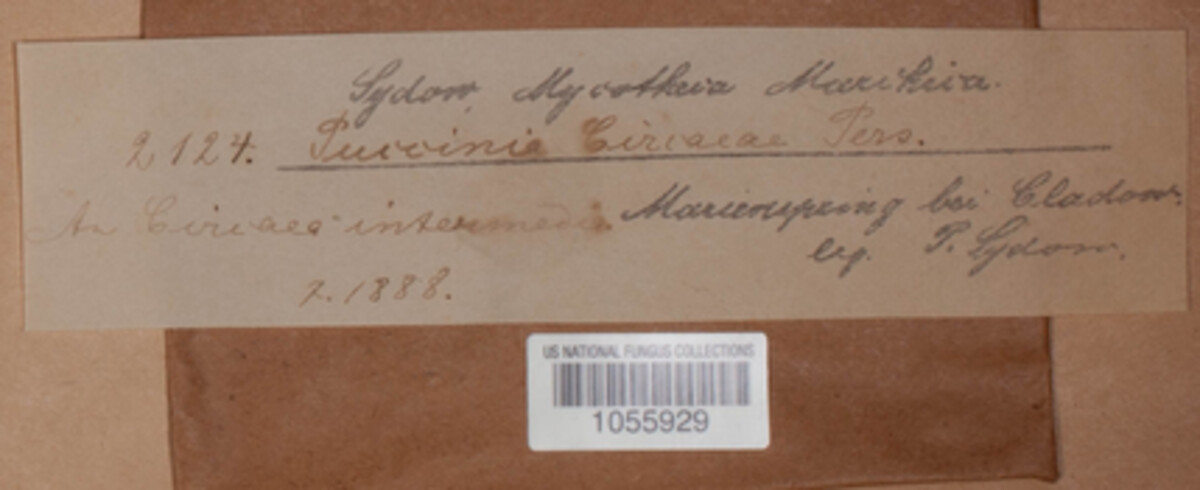 Sydow, Mycotheca Marchica.
2124. Puccinia Circaeae Pers.
An Circaea intermedia. Marienspring bei Cladow.
leg. P. Sydow.
7. 1888.
US NATIONAL FUNGUS COLLECTIONS
1055929